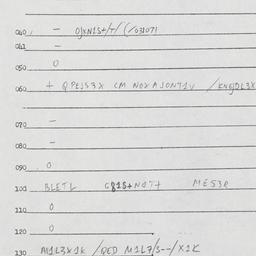 040 — OJXN1S+/T/ (/03107)
041 —
050 0
060 + QPEJS3X CM NOXAJONT1V /KNGJ0L3X
070 —
080 —
090 0
100 BLETL G81S+N07+ MES3R
110 0
120 0
130 M1L3X1K /QED M1L7/S--/X1K